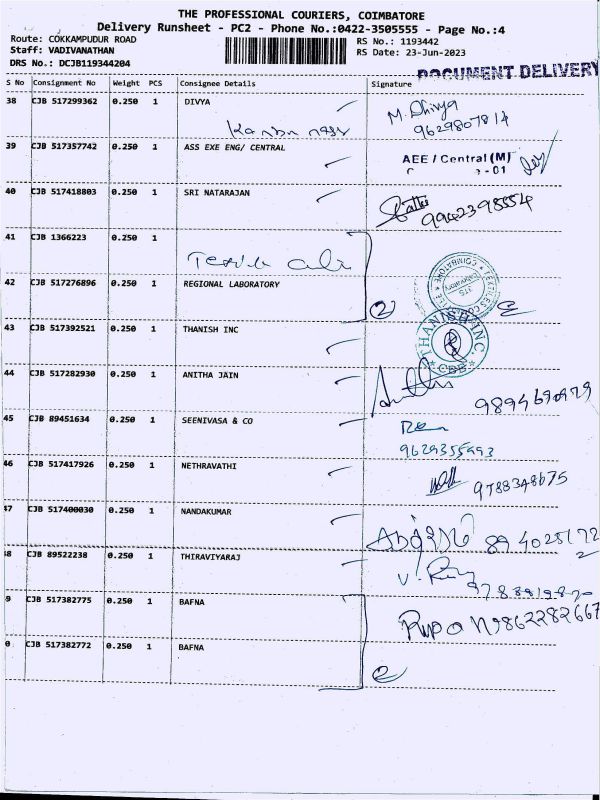 THE PROFESSIONAL COURIERS, COIMBATORE
Delivery Runsheet - PC2 - Phone No.:0422-3505555 - Page No.:4
Route: COKKAMPUDUR ROAD
RS No.: 1193442
Staff: VADIVANATHAN
RS Date: 23-Jun-2023
DRS No.: DCJB119344204
DOCUMENT DELIVERY
S No Consignment No Weight PCS Consignee Details Signature
38 CJB 517299362 0.250 1 DIVYA
M. Dhivya
9629807814
39 CJB 517357742 0.250 1 ASS EXE ENG/ CENTRAL
AEE / Central (M)
-01
40 CJB 517418803 0.250 1 SRI NATARAJAN
9942398554
41 CJB 1366223 0.250 1
42 CJB 517276896 0.250 1 REGIONAL LABORATORY
2
43 CJB 517392521 0.250 1 THANISH INC
THANISH INC
CBE
44 CJB 517282930 0.250 1 ANITHA JAIN
9894690979
45 CJB 89451634 0.250 1 SEENIVASA & CO
9629355993
46 CJB 517417926 0.250 1 NETHRAVATHI
9788348675
47 CJB 517400030 0.250 1 NANDAKUMAR
8940251722
8 CJB 89522238 0.250 1 THIRAVIYARAJ
9 CJB 517382775 0.250 1 BAFNA
9862282667
0 CJB 517382772 0.250 1 BAFNA
2